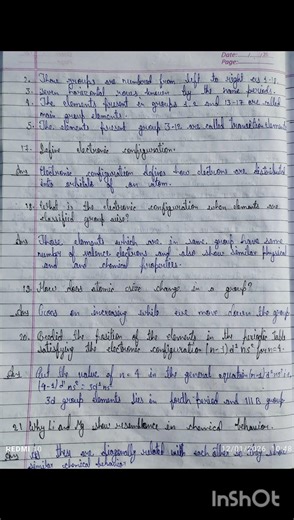 Date:
Page:
2. These groups are numbered from left to right as 1-18.
3. Seven horizontal rows known by the name periods.
4. The elements present in groups 1, 2 and 13-17 are called
main group elements.
5. The elements present group 3-12 are called Transition element
17. Define electronic configuration.
Ans Electronic configuration defines how electrons are distributed
into orbitals of an atom.
18. What is the electronic configuration when elements are
classified group wise?
Ans Those elements which are in same group have same
number of valence electrons and also show similar physical
and and chemical properties.
19. How does atomic size change in a group?
Ans Goes on increasing while we move down the group
20. Predict the position of the elements in the periodic table
satisfying the electronic configuration (n-1)d¹ ns² for n=4.
Ans Put the value of n = 4 in the general equation (n-1)d¹ns²
(4-1)d¹ns² = 3d¹4s²
group elements lies in fourth period and III B group
21. Why Li and Mg show resemblance in chemical behaviour.
Ans they are diagonally related with each other so they show
similar chemical behaviour
REDMI
InShOt